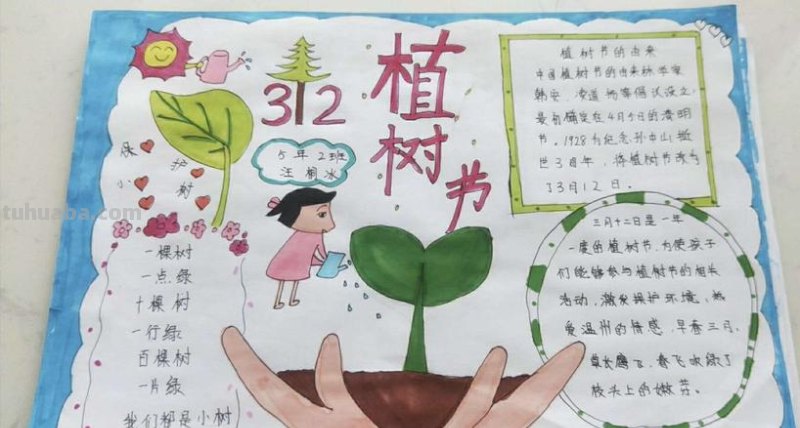 312
植
树
节
5年2班
汪桐冰
保护
小树
tuhuaba.com
一棵树
一点绿
十棵树
一行绿
百棵树
一片绿
我们都是小树
植树节的由来
中国植树节的由来林学家
韩安、凌道扬等倡议设立
最初确定在4月5日的清明
节。1928为纪念孙中山逝
世3周年，将植树节改为
了3月12日。
三月十二日是一年
一度的植树节,为使孩子
们能够参与植树节的相关
活动,激发保护环境、热
爱温州的情感,早春三月,
草长鹰飞,春飞吹绿了
枝头上的嫩芽。